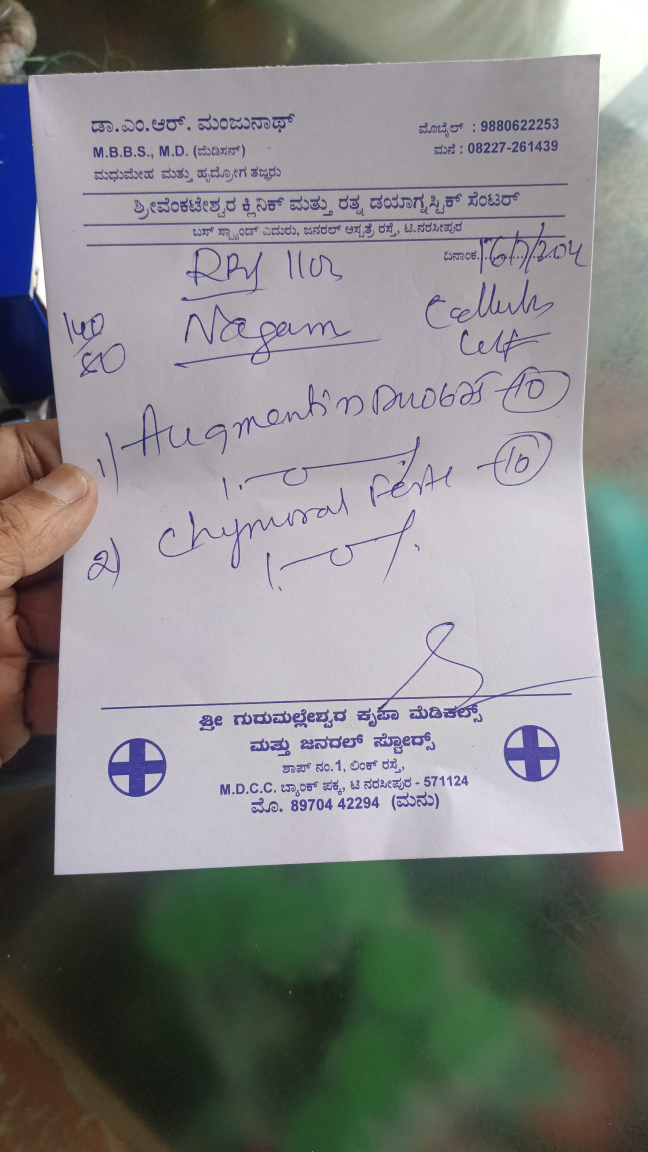 ಡಾ.ಎಂ.ಆರ್. ಮಂಜುನಾಥ್
M.B.B.S., M.D. (ಮೆಡಿಸನ್)
ಮಧುಮೇಹ ಮತ್ತು ಹೃದ್ರೋಗ ತಜ್ಞರು
ಮೊಬೈಲ್ : 9880622253
ಮನೆ : 08227-261439
ಶ್ರೀವೆಂಕಟೇಶ್ವರ ಕ್ಲಿನಿಕ್ ಮತ್ತು ರತ್ನ ಡಯಾಗ್ನಸ್ಟಿಕ್ ಸೆಂಟರ್
ಬಸ್ ಸ್ಟ್ಯಾಂಡ್ ಎದುರು, ಜನರಲ್ ಆಸ್ಪತ್ರೆ ರಸ್ತೆ, ಟಿ.ನರಸೀಪುರ
ದಿನಾಂಕ
140
80
Nagam
1) Augmentin Duo 625 - 10
1 - 0 - 1
2) Chymoral Forte - 10
1 - 0 - 1
ಶ್ರೀ ಗುರುಮಲ್ಲೇಶ್ವರ ಕೃಪಾ ಮೆಡಿಕಲ್ಸ್
ಮತ್ತು ಜನರಲ್ ಸ್ಟೋರ್ಸ್
ಶಾಪ್ ನಂ.1, ಲಿಂಕ್ ರಸ್ತೆ,
M.D.C.C. ಬ್ಯಾಂಕ್ ಪಕ್ಕ, ಟಿ ನರಸೀಪುರ - 571124
ಮೊ. 89704 42294 (ಮನು)